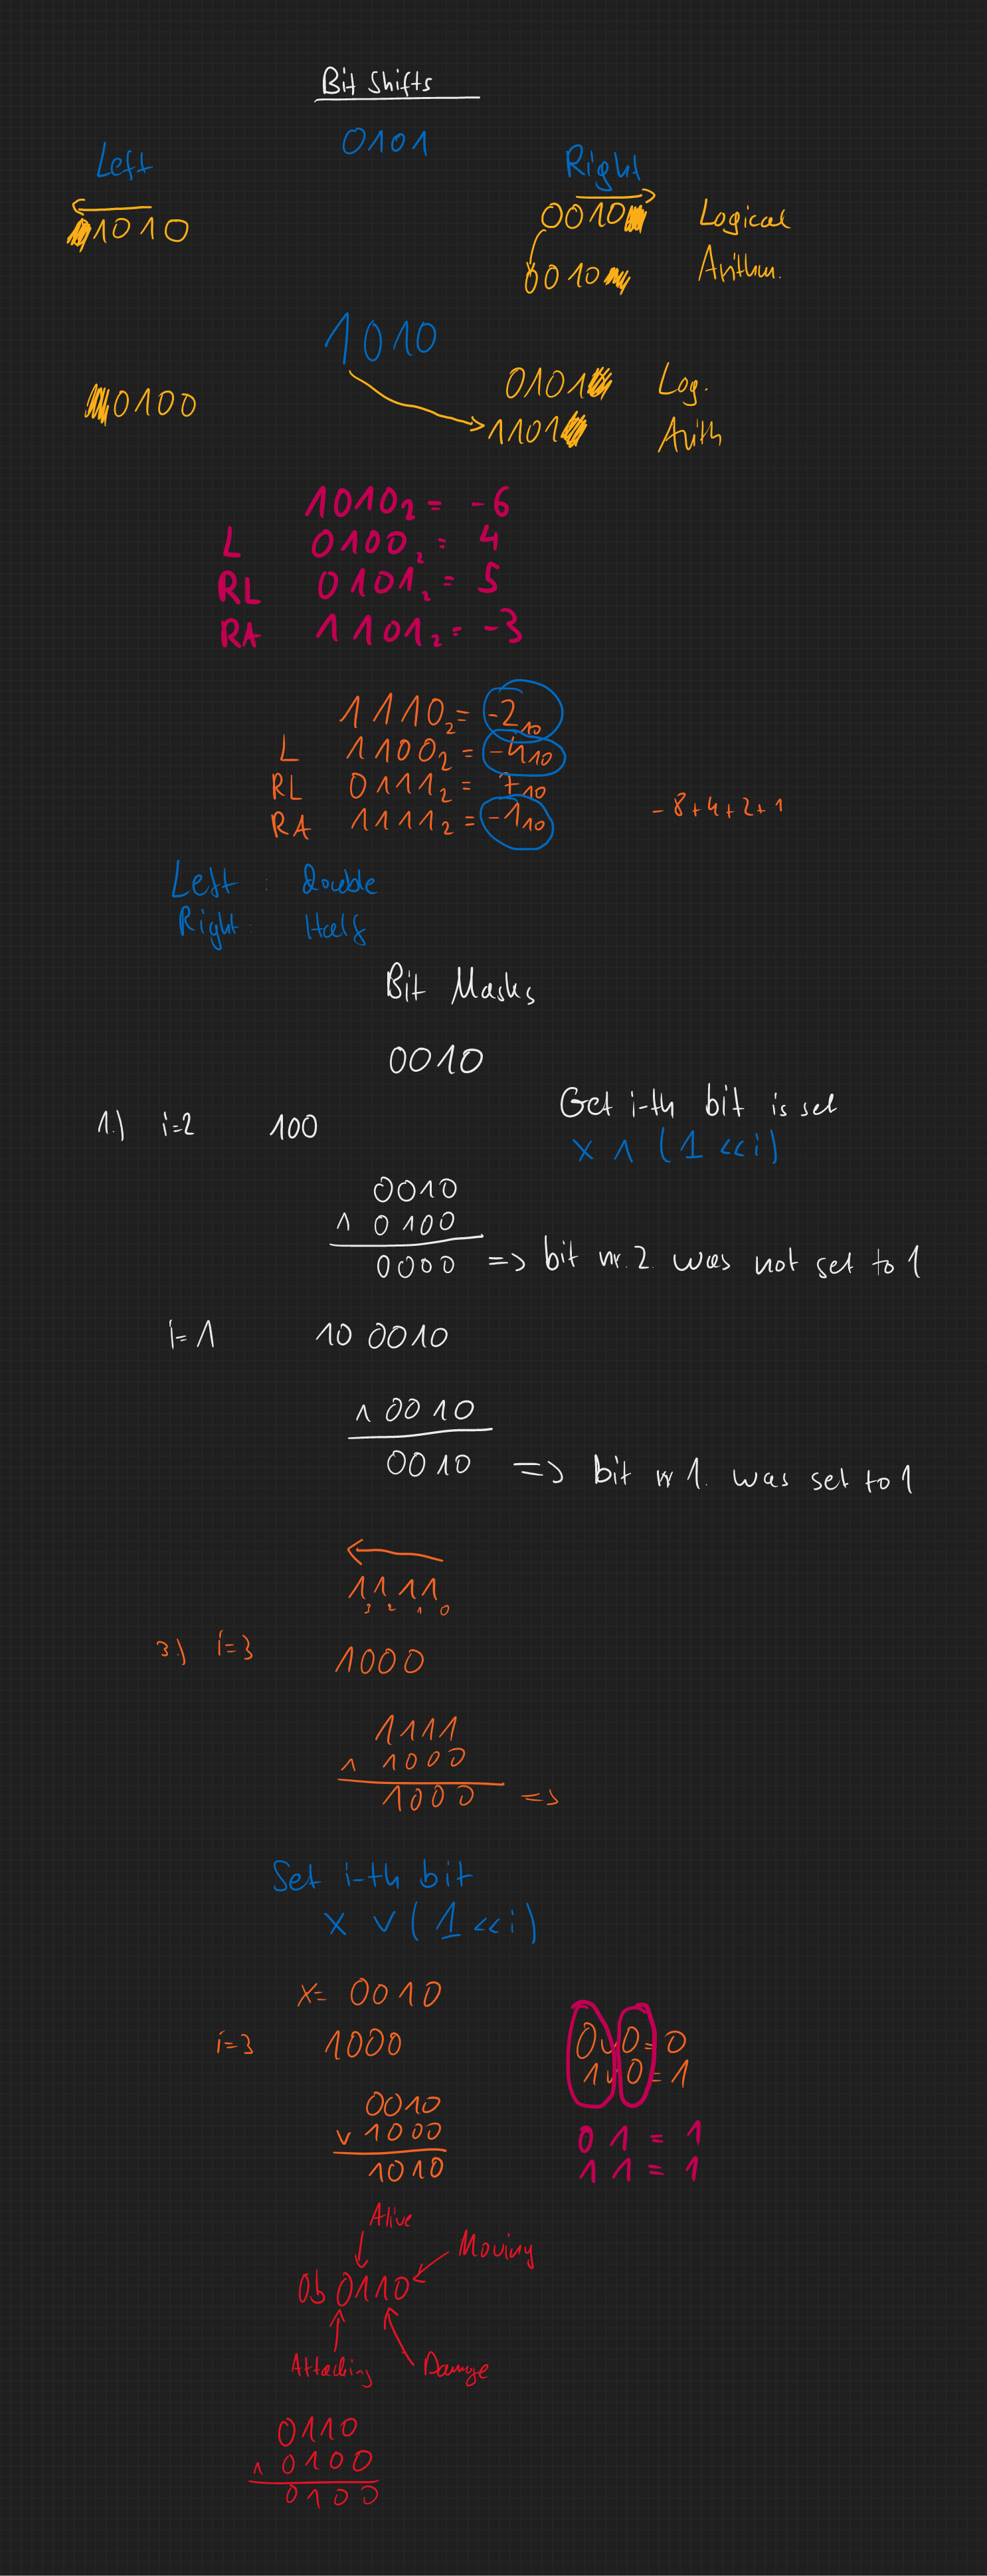 Bit Shifts
0101
Left Right
1010 0010 Logical
0010 Arithm.
1010
0100 0101 Log.
1101 Arith
1010₂ = -6
L 0100₂ = 4
RL 0101₂ = 5
RA 1101₂ = -3
1110₂ = -2₁₀
L 1100₂ = -4₁₀
RL 0111₂ = 7₁₀
RA 1111₂ = -1₁₀ -8+4+2+1
Left : Double
Right : Half
Bit Masks
0010
Get i-th bit is set
1.) i=2 100 x ∧ (1 << i)
0010
∧ 0100
0000 => bit nr. 2. was not set to 1
i=1 10 0010
∧ 0010
0010 => bit nr 1. was set to 1
1111
3 2 1 0
3.) i=3 1000
1111
∧ 1000
1000 =>
Set i-th bit
x ∨ (1 << i)
x= 0010
i=3 1000 0∨0=0
1∨0=1
0010
∨ 1000 0 1 = 1
1010 1 1 = 1
Alive
Moving
0b 0110
Attacking Damage
0110
∧ 0100
0100